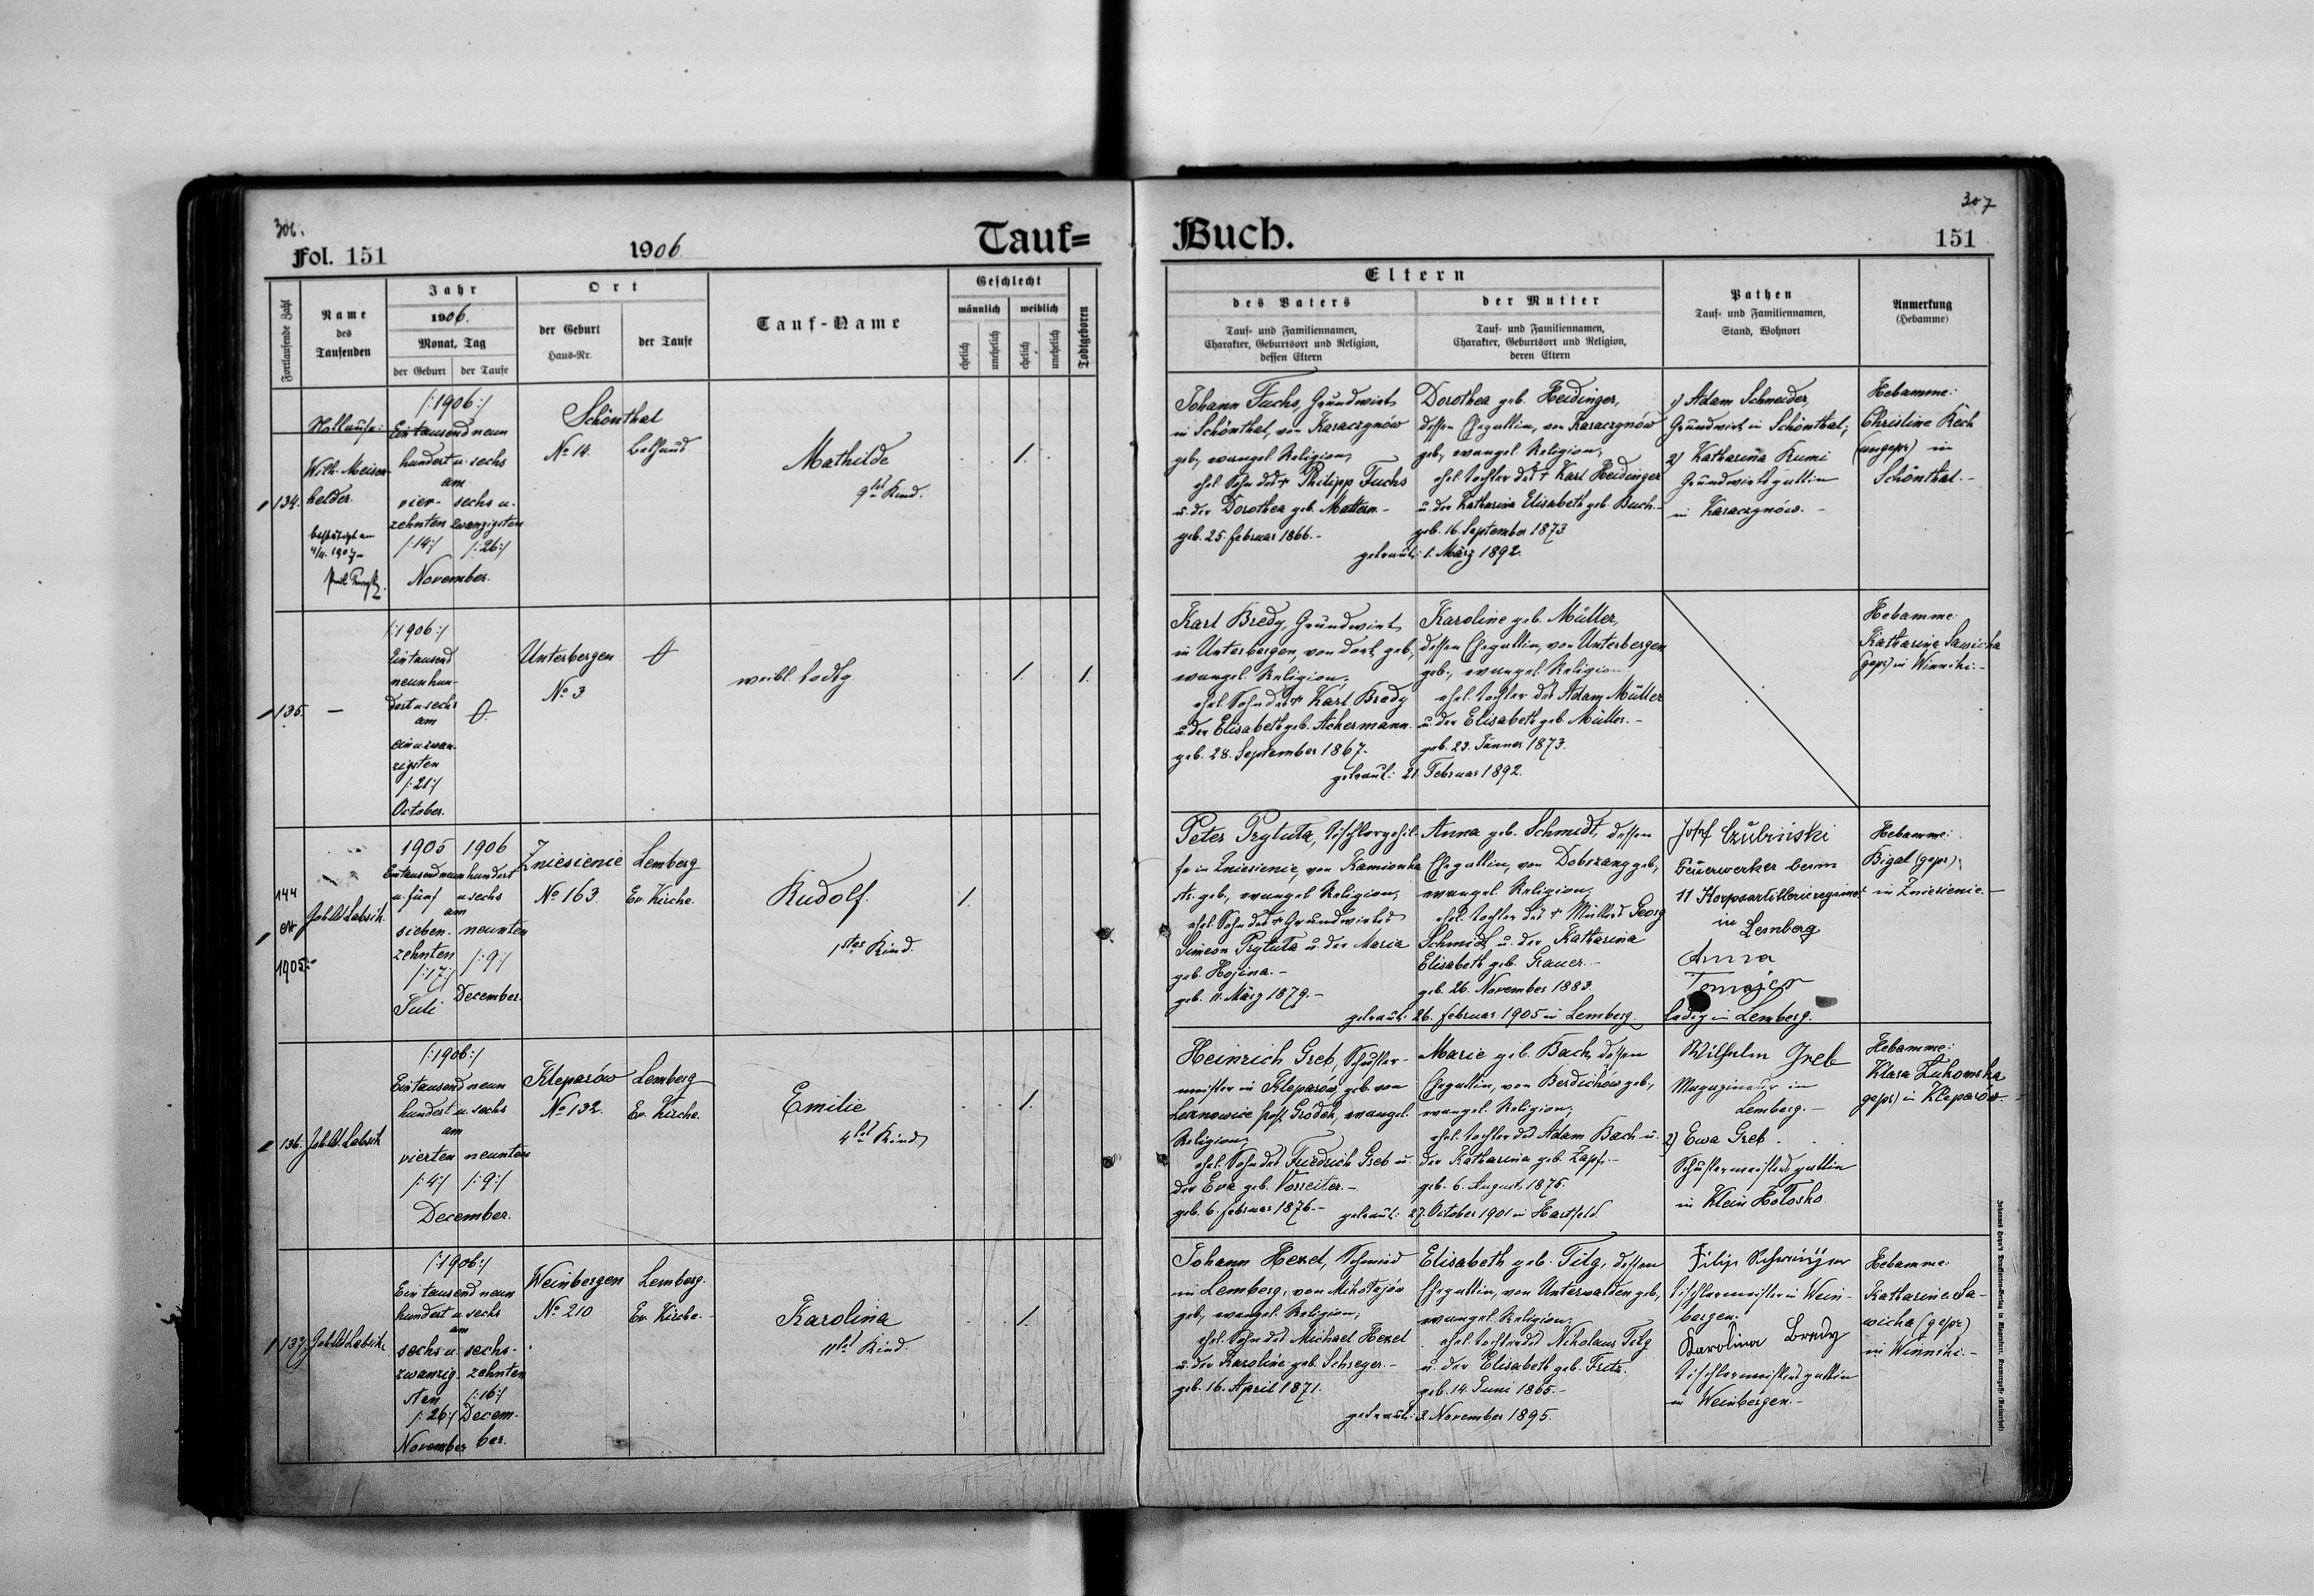 306.
Fol. 151
1906
Tauf=
Fortlaufende Zahl
Name
des
Taufenden
Jahr
1906.
Monat, Tag
der Geburt
der Taufe
Ort
der Geburt
Haus-Nr.
der Taufe
Tauf-Name
Geschlecht
männlich
weiblich
ehelich
unehelich
ehelich
unehelich
Todtgeboren
134.
Nottaufe:
Wilh. Meisen-
helder.
bestätigt am
4/11. 1907
/:1906:/
Ein tausend neun
hundert u. sechs
am
vier- sechs u.
zehnten zwanzigsten
/:14:/ /:26:/
November.
Schönthal
No 14. Bethaus
Mathilde
9tes Kind.
1.
135.
—
/:1906:/
Ein tausend
neunhun-
dert u. sechs
am
ein u. zwan-
zigsten
/:21:/
October.
Unterbergen
No 3
weibl. todtg.
1. 1.
144
ex
1905.-
Job. Ad. Labsik
1905 1906
Ein tausend neunhundert
u. fünf u. sechs
am
sieben- neunten
zehnten /:9:/
/:17:/
Juli December.
Zniesienie Lemberg
No 163. Ev. Kirche.
Rudolf.
1stes Kind.
1.
136.
Job. Ad. Labsik
/:1906:/
Ein tausend neun
hundert u. sechs
am
vierten neunten
/:4:/ /:9:/
December.
Kleparów Lemberg
No 132. Ev. Kirche.
Emilie
4tes Kind
1.
137.
Job. Ad. Labsik
/:1906:/
Ein tausend neun
hundert u. sechs
am
sechs u. sechs-
zwanzig- zehnten
sten /:16:/
/:26:/ Decem-
November ber.
Weinbergen Lemberg.
No 210 Ev. Kirche.
Karolina
11tes Kind.
1.
307
Buch.
151
Eltern
des Vaters
Tauf- und Familiennamen,
Charakter, Geburtsort und Religion,
dessen Eltern
der Mutter
Tauf- und Familiennamen,
Charakter, Geburtsort und Religion,
deren Eltern
Pathen
Tauf- und Familiennamen,
Stand, Wohnort
Anmerkung
(Hebamme)
Johann Fuchs, Grundwirt
in Schönthal, von Karaczynów
geb., evangel. Religion,
ehel. Sohn des + Philipp Fuchs
u. der Dorothea geb. Mattern.-
geb. 25. Februar 1866.-
Dorothea geb. Heidinger,
dessen Ehegattin, von Karaczynów
geb., evangel. Religion,
ehel. Tochter des + Karl Heidinger
u. der Katharina Elisabeth geb. Buch.-
geb. 16. September 1873.
getraut: 1. März 1892.
1) Adam Schneider,
Grundwirt in Schönthal;
2) Katharina Kumi
Grundwirtsgattin
in Karaczynów.-
Hebamme:
Christine Kech
(ungepr.) in
Schönthal.-
Karl Bredy, Grundwirt
in Unterbergen, von dort geb.,
evangel. Religion,
ehel. Sohn des + Karl Bredy
u. der Elisabeth geb. Achermann.
geb. 28. September 1867.
Karoline geb. Müller,
dessen Ehegattin, von Unterbergen
geb., evangel. Religion
ehel. Tochter des Adam Müller
u. der Elisabeth geb. Müller.-
geb. 23. Jänner 1873.
getraut: 21. Februar 1892.
Hebamme:
Katharina Sawicka
(gepr.) in Winniki.-
Peter Prytuła, Tischlergehil-
fe in Zniesienie, von Kamionka
str. geb., evangel. Religion,
ehel. Sohn des + Grundwirtes
Simeon Prytuła u. der Maria
geb. Hojina.-
geb. 11. März 1879.-
Anna geb. Schmidt, dessen
Ehegattin, von Dobrzany geb.,
evangel. Religion,
ehel. Tochter des + Müllers Georg
Schmidt u. der Katharina
Elisabeth geb. Grauer.-
geb. 26. November 1883.
getraut: 26. Februar 1905 in Lemberg.
Josef Czubiński
Feuerwerker beim
11 Korpsartillerieregiment
in Lemberg
Anna
ledig in Lemberg.
Hebamme:
Bigal (gepr.)
in Zniesienie.-
Heinrich Greb, Schuster-
meister in Kleparów, geb. von
Grodek, evangel.
Religion,
ehel. Sohn des Friedrich Greb u.
der Eva geb. Vorreiter.-
geb. 6. Februar 1876.-
Marie geb. Bach, dessen
Ehegattin, von Berdichów geb.,
evangel. Religion,
ehel. Tochter des Adam Bach u.
der Katharina geb. Zapf.-
geb. 6. August 1875.
getraut: 27. October 1901 in Hartfeld.
Wilhelm Greb
Magazineur in
Lemberg.-
2) Ewa Greb.
Schustermeistersgattin
in Klein Hołosko
Hebamme:
Klara Żukowska
gepr.) in Kleparów.-
Johann Hexel, Schmied
in Lemberg, von Mikołajów
geb., evangel. Religion,
ehel. Sohn des Michael Hexel
u. der Karoline geb. Schreyer.-
geb. 16. April 1871.
Elisabeth geb. Filg, dessen
Ehegattin, von Unterwalden geb.,
evangel. Religion,
ehel. Tochter des Nikolaus Filg
u. der Elisabeth geb. Fritz.
geb. 14. Juni 1865.-
getraut: 3. November 1895.
Filip Schwinger
Tischlermeister in Wein-
bergen.
Karolina Bredy
Tischlermeistersgattin
in Weinbergen.-
Hebamme:
Katharina Sa-
wicka (gepr.)
in Winniki.-